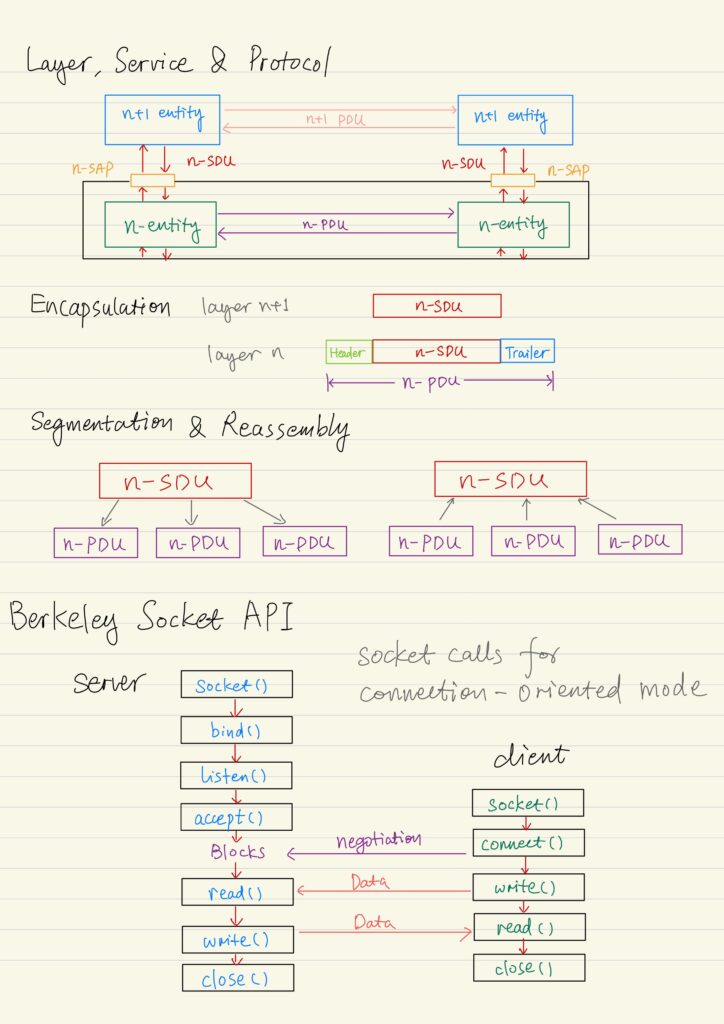 Layer, Service & Protocol
n+1 entity
n+1 PDU
n+1 entity
n-SAP
n-SDU
n-SDU
n-SAP
n-entity
n-PDU
n-entity
Encapsulation
layer n+1
n-SDU
layer n
Header
n-SDU
Trailer
n-PDU
Segmentation & Reassembly
n-SDU
n-SDU
n-PDU
n-PDU
n-PDU
n-PDU
n-PDU
n-PDU
Berkeley Socket API
Socket calls for
connection-oriented mode
Server
Socket()
bind()
listen()
accept()
Blocks
read()
write()
close()
negotiation
Data
Data
client
socket()
connect()
write()
read()
close()